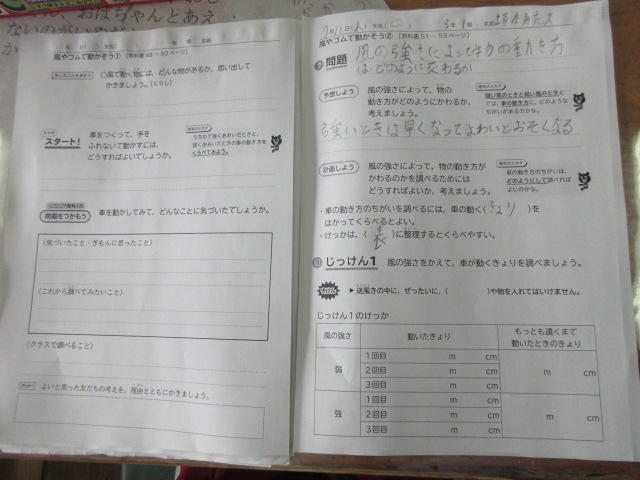 風やゴムで動かそう① [教科書48～50ページ]
○風で動く物には、どんな物があるか、思い出して
かきましょう。(くらし)
スタート!
車をつくって、手を
ふれないで動かすには、
どうすればよいでしょうか。
うちわで強くあおいだときと、
弱くあおいだときの車の動き方を
くらべてみよう。
問題をつかもう
車を動かしてみて、どんなことに気づいたでしょうか。
(気づいたこと・ぎもんに思ったこと)
(これから調べてみたいこと)
(クラスで調べること)
よいと思った友だちの考えを、理由とともにかきましょう。
3年1組 名前
風やゴムで動かそう② [教科書51～53ページ]
問題
風の強さによって物の動き方
は、どのように変わるか
予想しよう
風の強さによって、物の
動き方がどのにかわるか、
考えましょう。
強い風のときと弱い風のときと
では、車の動き方に、どのような
ちがいがあるのかな。
強いときは早くなってよわいとおそくなる
計画しよう
風の強さによって、物の動き方が
かわるのかを調べるためには
どうすればよいか、考えましょう。
車の動き方のちがいは、
どのようにして調べれば
よいのかな。
・車の動き方のちがいを調べるには、車の動く(きょり)を
はかってくらべるとよい。
・けっかは、(表)に整理するとくらべやすい。
じっけん1 風の強さをかえて、車が動くきょりを調べましょう。
きけん ▶送風きの中に、ぜったいに、( )や物を入れてはいけません。
じっけん1のけっか
風の強さ 動いたきょり もっとも遠くまで
動いたときのきょり
弱 1回目 m cm
2回目 m cm m cm
3回目 m cm
強 1回目 m cm
2回目 m cm m cm
3回目 m cm